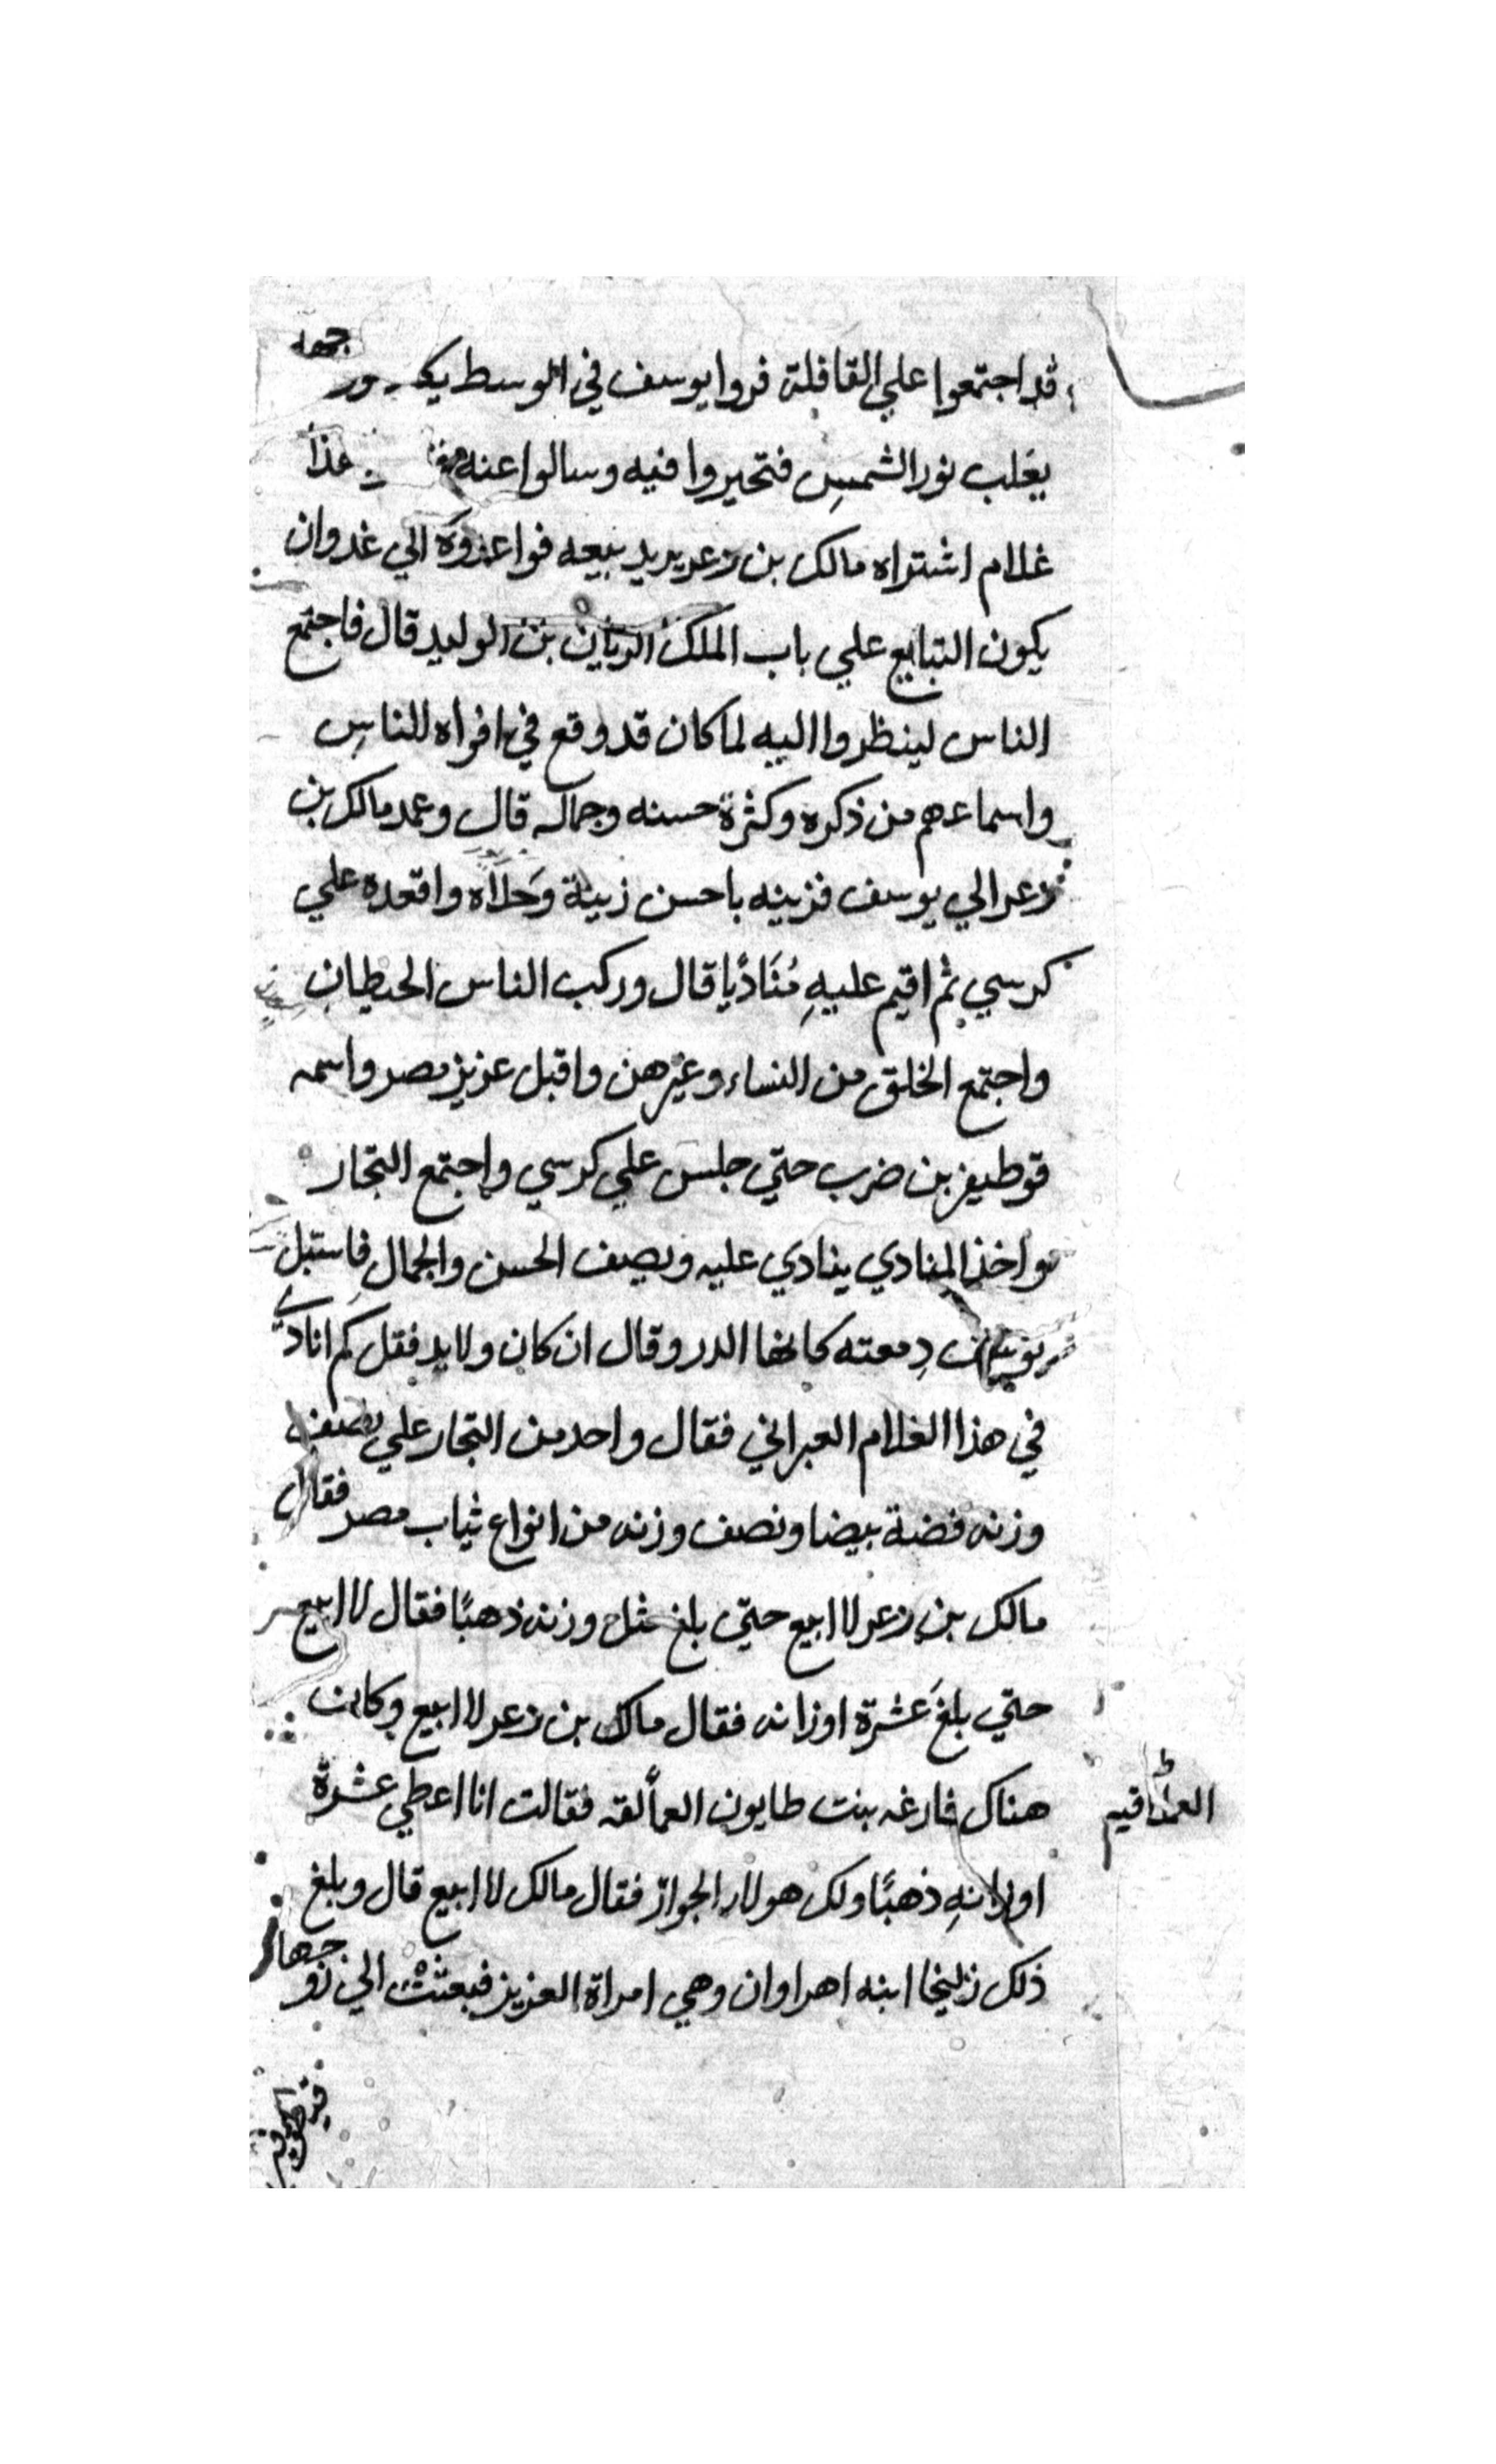 قد اجتمعوا علي القافلة فروا يوسف في الوسط يكـ ـور وجهه
يغلب نور الشمس فتحيروا فيه وسالوا عنه هذا
غلام اشتراه مالك بن زعر يريد بيعه فواعدوه الي غد وان
يكون التبايع علي باب الملك الريان بن الوليد قال فاجتمع
الناس لينظروا اليه لما كان قد وقع في افواه للناس
واسماعهم من ذكره وكثرة حسنه وجماله قال وعمد مالك بن
زعر الي يوسف فزينه باحسن زينة وحلاه واقعده علي
كرسي ثم اقيم عليهِ مُنَاديًا قال وركب الناس الحيطان
واجتمع الخلق من النساء وغيرهن واقبل عزيز مصر واسمه
قوطيفر بن ضرب حتي جلس علي كرسي واجتمع التجار
واخذ المنادي ينادي عليه ويصف الحسن والجمال فاستبل
دِمعته كانها الدر وقال ان كان ولا بد فقل كم انادي
في هذا الغلام العبراني فقال واحد من التجار علي نصف
وزنه فضة بيضا ونصف وزنه من انواع ثياب مصر فقال
مالك بن زعر لا ابيع حتي بلغ مثل وزنه ذهبًا فقال لا ابيع
حتي بلغَ عَشرة اوزانه فقال مالك بن زعر لا ابيع وكانت
هناك فارغه بنت طايون العمالقه فقالت انا اعطي عشرة
اوزانهِ ذهبًا ولك هولاء الجوار فقال مالك لا ابيع قال وبلغ
ذلك زليخا ابنه اهراوان وهي امراة العزيز فبعثت الي زوجها